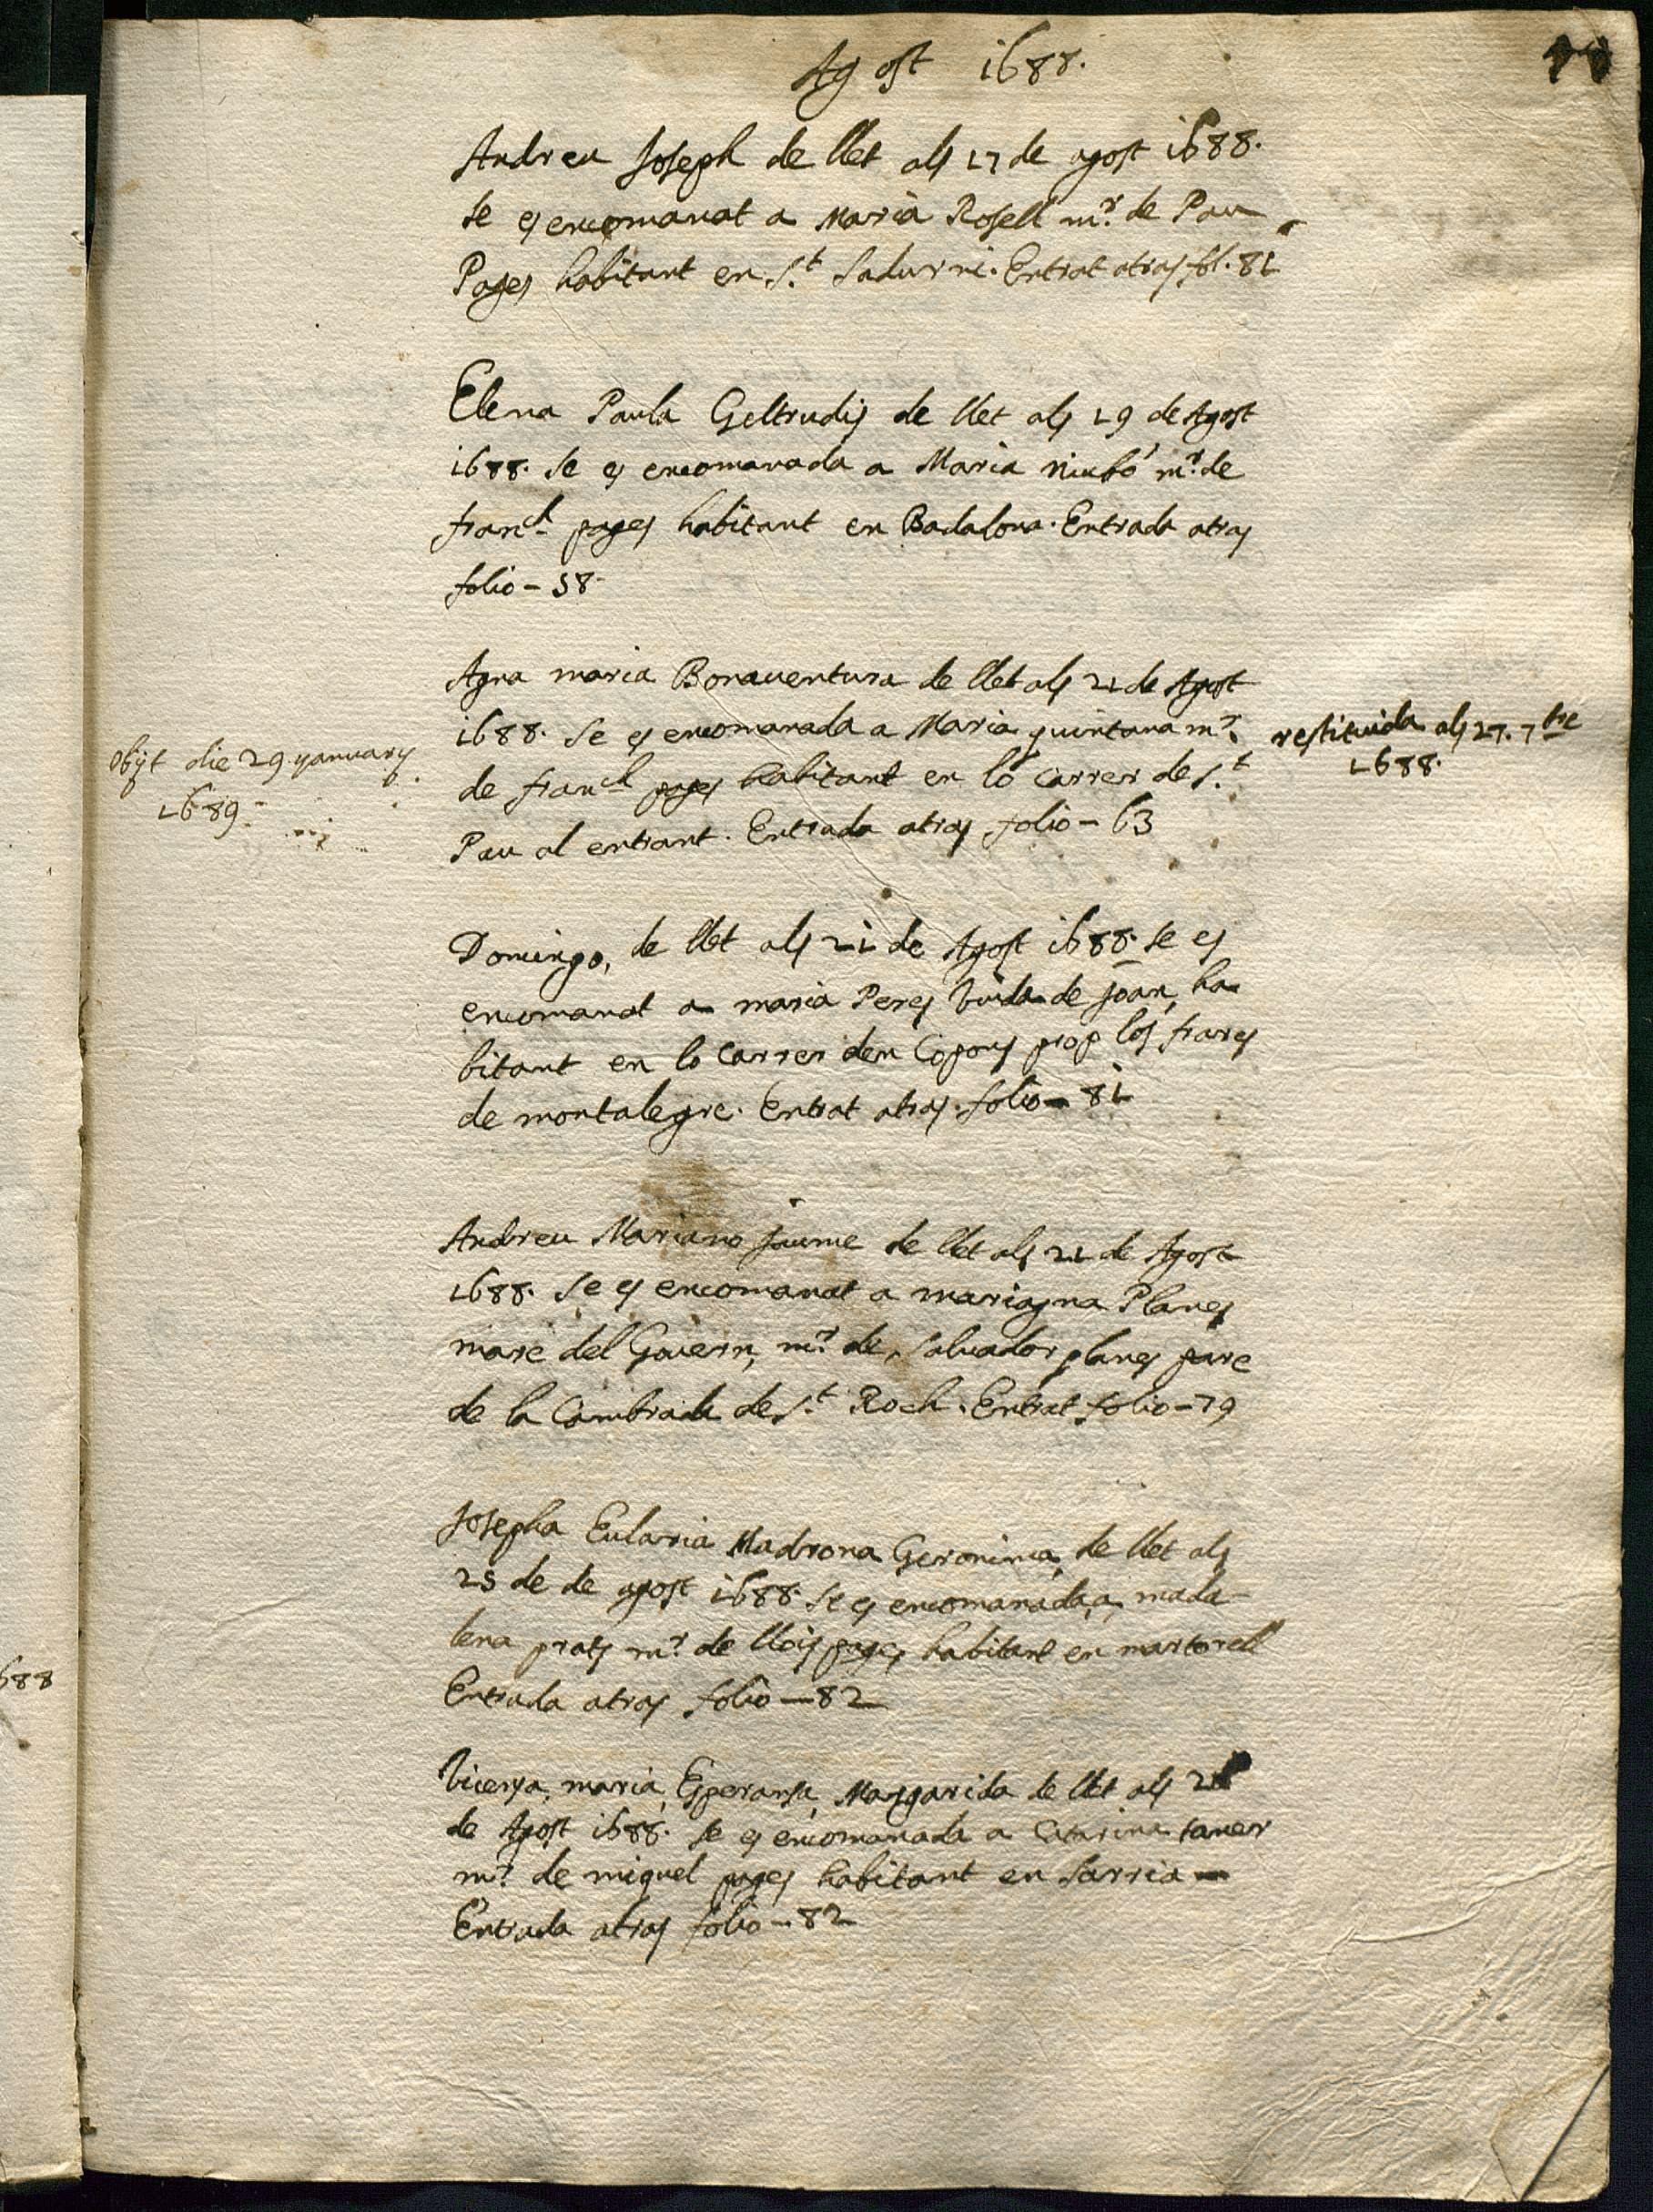 Agost 1688.
Andreu Joseph de llet als 17 de agost 1688.
se es encomanat a Maria Rosell mr. de Pau
Pages habitant en St. Sadurni. Entrat atras fol. 81
Elena Paula Geltrudis de llet als 19 de Agost
1688. se es encomanada a Maria Niubó mr. de
franch pages habitant en Badalona. Entrada atras
folio - 58
Agna maria Bonaventura de llet als 21 de Agost
1688. se es encomanada a Maria quintana mr.
de franch pages habitant en lo carrer de St.
Pau al entrant. Entrada atras folio - 63
restituida als 27. 7bre
1688.
Obijt die 29 yanuary
1689.
Domingo, de llet als 21 de Agost 1688. se es
encomanat a maria Peres viuda de joan, ha-
bitant en lo carrer den Copons prop los frares
de montalegre. Entrat atras folio - 81
Andreu Mariano jaume de llet als 21 de Agost
1688. se es encomanat a mariagna Planes
mare del Govern, mr. de salvador planes pare
de la Cambrada de St. Roch. Entrat folio - 79
Josepha Eularia Madrona Geronima, de llet als
25 de de agost 1688. se es encomanada, a, mada-
lena prats mr. de llois pages habitant en martorell
Entrada atras folio - 82
Vicensa, maria, Esperansa, Margarida de llet als
de Agost 1688. se es encomanada a Catarina taner
mr. de miquel pages habitant en Sarria -
Entrada atras folio - 82
688